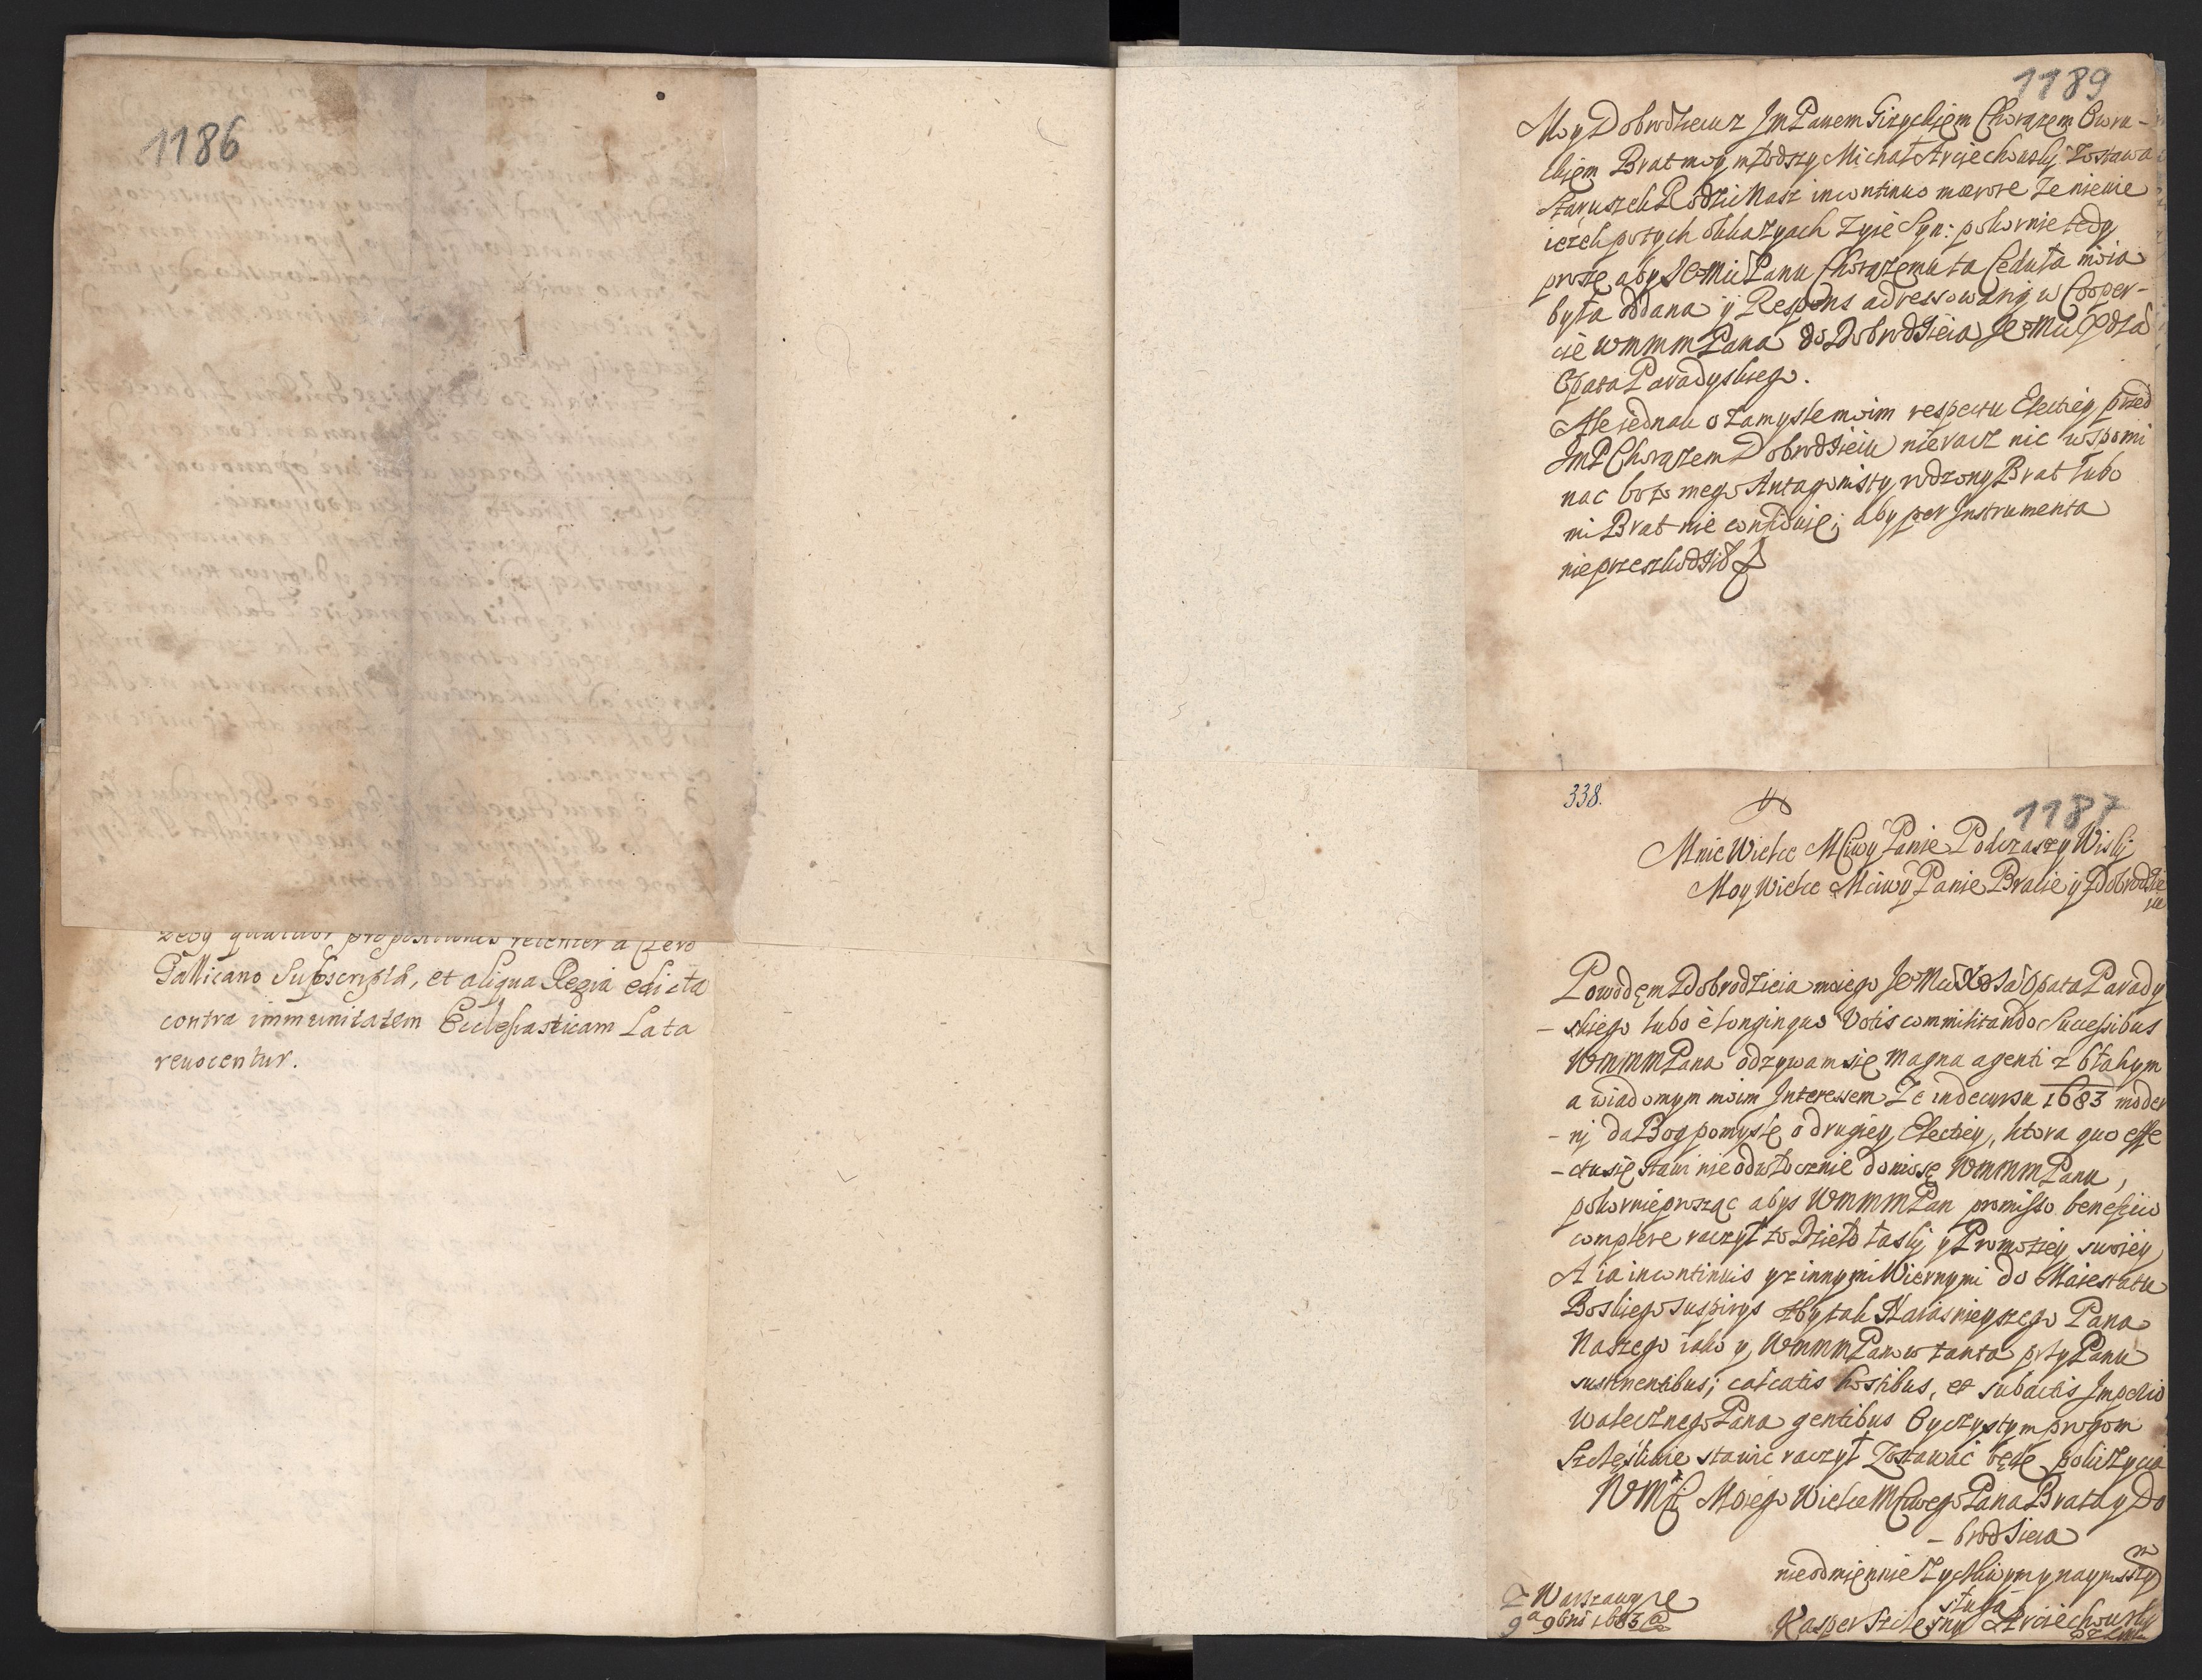 1186
żeby quatuor propositiones recenter a Clero
Gallicano Subscripta, et aliqua Regia edicta
contra immunitatem Ecclesiasticam Lata
reuocentur.
1189
Moy Dobrodzieiu z Jm Panem Giżyckięm Chorążem Owru-
ckięm Brat moy młodszy Michał Arciechowsky Zostawa
Staruszek Rodzic Nasz in continuo mærore że niewie
ieżeli po tych okkazyach żyie Syn: pokornie tedy
proszę, aby Je͠o Mci Panu Chorążemu ta Ceduła moia
była oddana y Respons adressowany w Cooper-
cie WMMMPana do Dobrodzieia Je͠o Mci Xdza
Opata Paradyskiego.
Ale iednak o zamysle moim respectu Electiey przed
JmP Chorążem Dobrodzieiu nieracz nic wspomi
nac bo to mego Antagonisty rodzony Brat lubo
mi Brat nie confiduię; aby per Instrumenta
nieprzeszkodził
338.
1187
Mnie Wielce Mściwy Panie Podczaszy Wisky
Moy Wielce Mciwy Panie Bracie y Dobrodzie
iu
Powodęm Dobrodzieia moiego Je͠o Mci Xdza Opata Parady
-skiego lubo è longinquo Votis commilitando Successibus
WMMMPana odzywam się magna agenti z błahym
a wiadomym moim Interessem Że in decursu 1683 moder
-ni da Bog pomyslę o drugiey Electiey, ktora quo effe
-ctu się stawi nieodwłocznie doniosę WMMMPanu,
pokornie prosząc abys WMMMPan promisso beneficio
complere raczył to Dzieło łasky y Promotiey swoiey
A ia incontinuis y z innymi Wiernymi do Maiestatu
Boskiego suspirys aby tak Naiasnieyszego Pana
Naszego iako y WMMMPanow tanta przy Panu
sustinentibus; calcatis hostibus, et subactis Imperio
Walecznego Pana gentibus Oyczystym progom
Szczęsliwie stawic raczył Zostawać będę poki życia
WMści Moiego Wielce Mściwego Pana Brata y Do
-brodzieia
nieodmięnnie życzliwym y nayniższy
m
sługą
Z Warszawy
9ª 9bris 1683
Kasper Szczęsny Arciechowsky